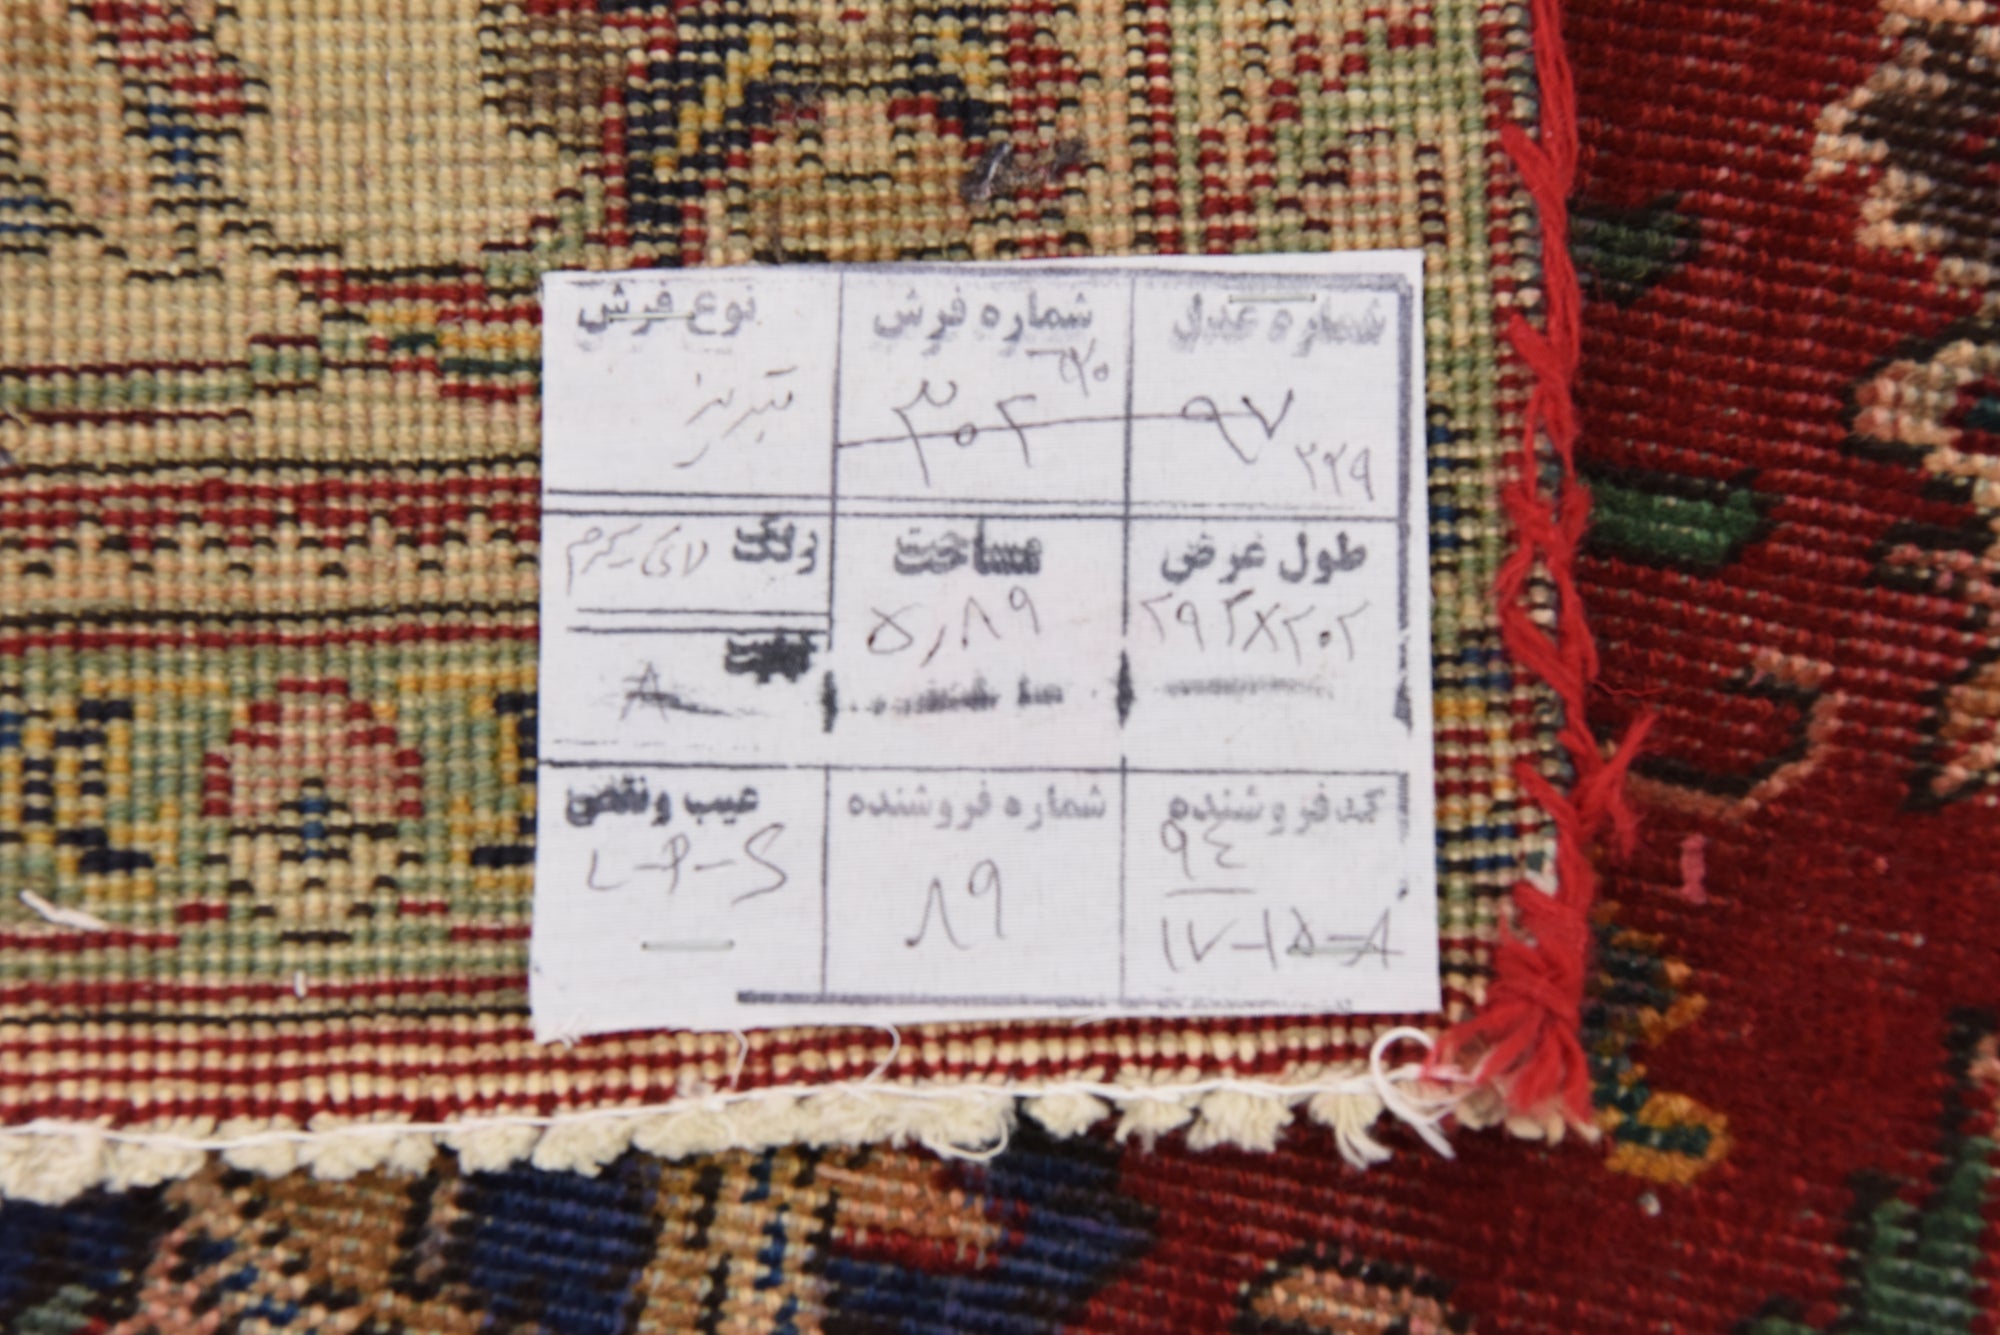 شماره عدل شماره فرش نوع فرش
۶۷۰
۹۷ ۳۰۲ تبریز
۲۲۹
طول عرض مساحت رنگ لاکی کرم
۲۹۲X۲۰۲ ۵٫۸۹
A
کد فروشنده شماره فروشنده عیب و نقص
۹۴ ۸۹ L-P-S
۱۷-۱۵-A